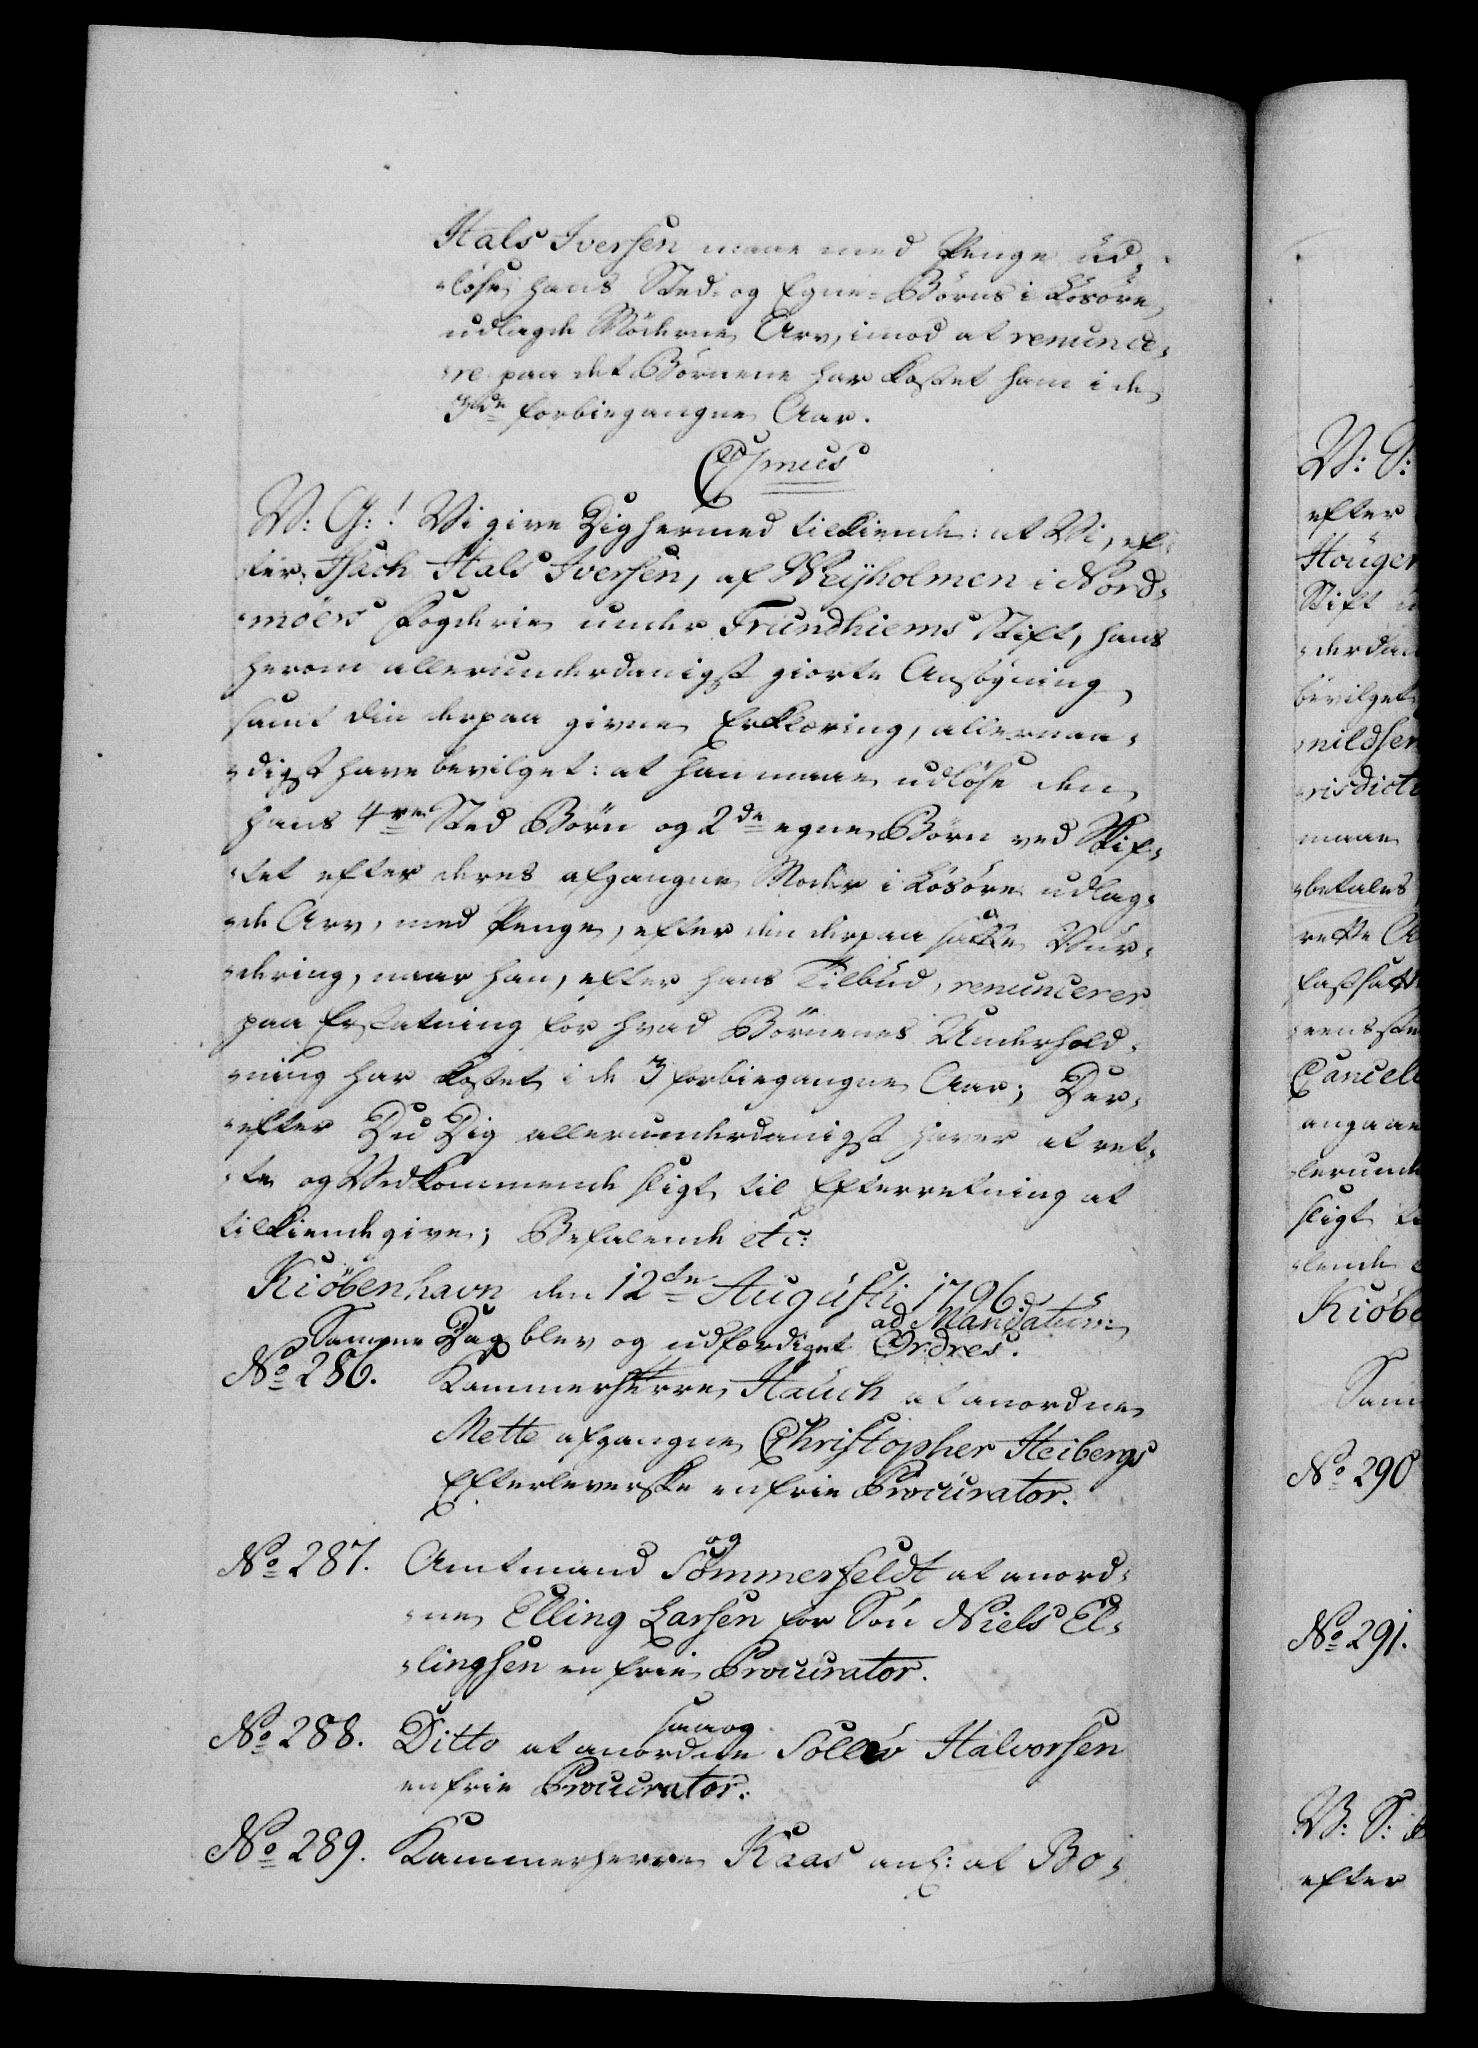 Hals Iversen maae med Penge ud,
,løse hans Sted- og Egne-Børns i Løsøre
udlagde Møderne Arv, imod at renunce,
,re paa det Børnene har kostet ham i de
3de forbiegangne Aar.
C7mus
V: G:! Vi give Dig hermed tilkiende: at Vi, ef,
,ter Isach Hals Iversen, af Weÿholmen i Nord,
,möers Fogderie under Trundhiems Stift, hans
herom allerunderdanigst giorte Ansøgning
samt Din derpaa givne Erklæring, allernaa,
,digst have bevilget: at han maae udløse den
hans 4re Sted Børn og 2de egne Børn ved Skif,
,tet efter deres afgangne Moder i Løsøre udlag,
,de Arv, med Penge, efter den derpaa satte Vur,
,dering, naar han, efter hans Tilbud, renuncerer
paa Erstatning for hvad Børnenes Underhold,
,ning har kostet i de 3 forbiegangne Aar; Der,
,efter Du Dig allerunderdanigst haver at ret,
,te og Vedkommende sligt til Efterretning at
tilkiendegive; Befalende etc:
Kiöbenhavn den 12te Augusti 1796.
ad Mandatum:
Samme Dag blev og udfærdiget Ordres.
No 286. Kammerherre Hauch at anordne
Mette afgangne Christopher Heibergs
Efterleverske en frie Procurator.
No 287. Amtmand og Sommerfeldt at anord,
,ne Elling Larsen for Søn Niels El,
,lingsen en frie Procurator.
No 288. Ditto at anordne saaog Sollev Halvorsen
en frie Procurator.
No 289. Kammerherre Kaas anf: at Bo,
V: G:
efter
Houger
Stift
,derdan
bevilget
,mildsen
,risdicti
maae
,betales
rette
fastsatte
Cancell
angaae
,lerunde
sligt
,lende
Kiöbe
Sam
No 290
No 291.
V: S:
efter